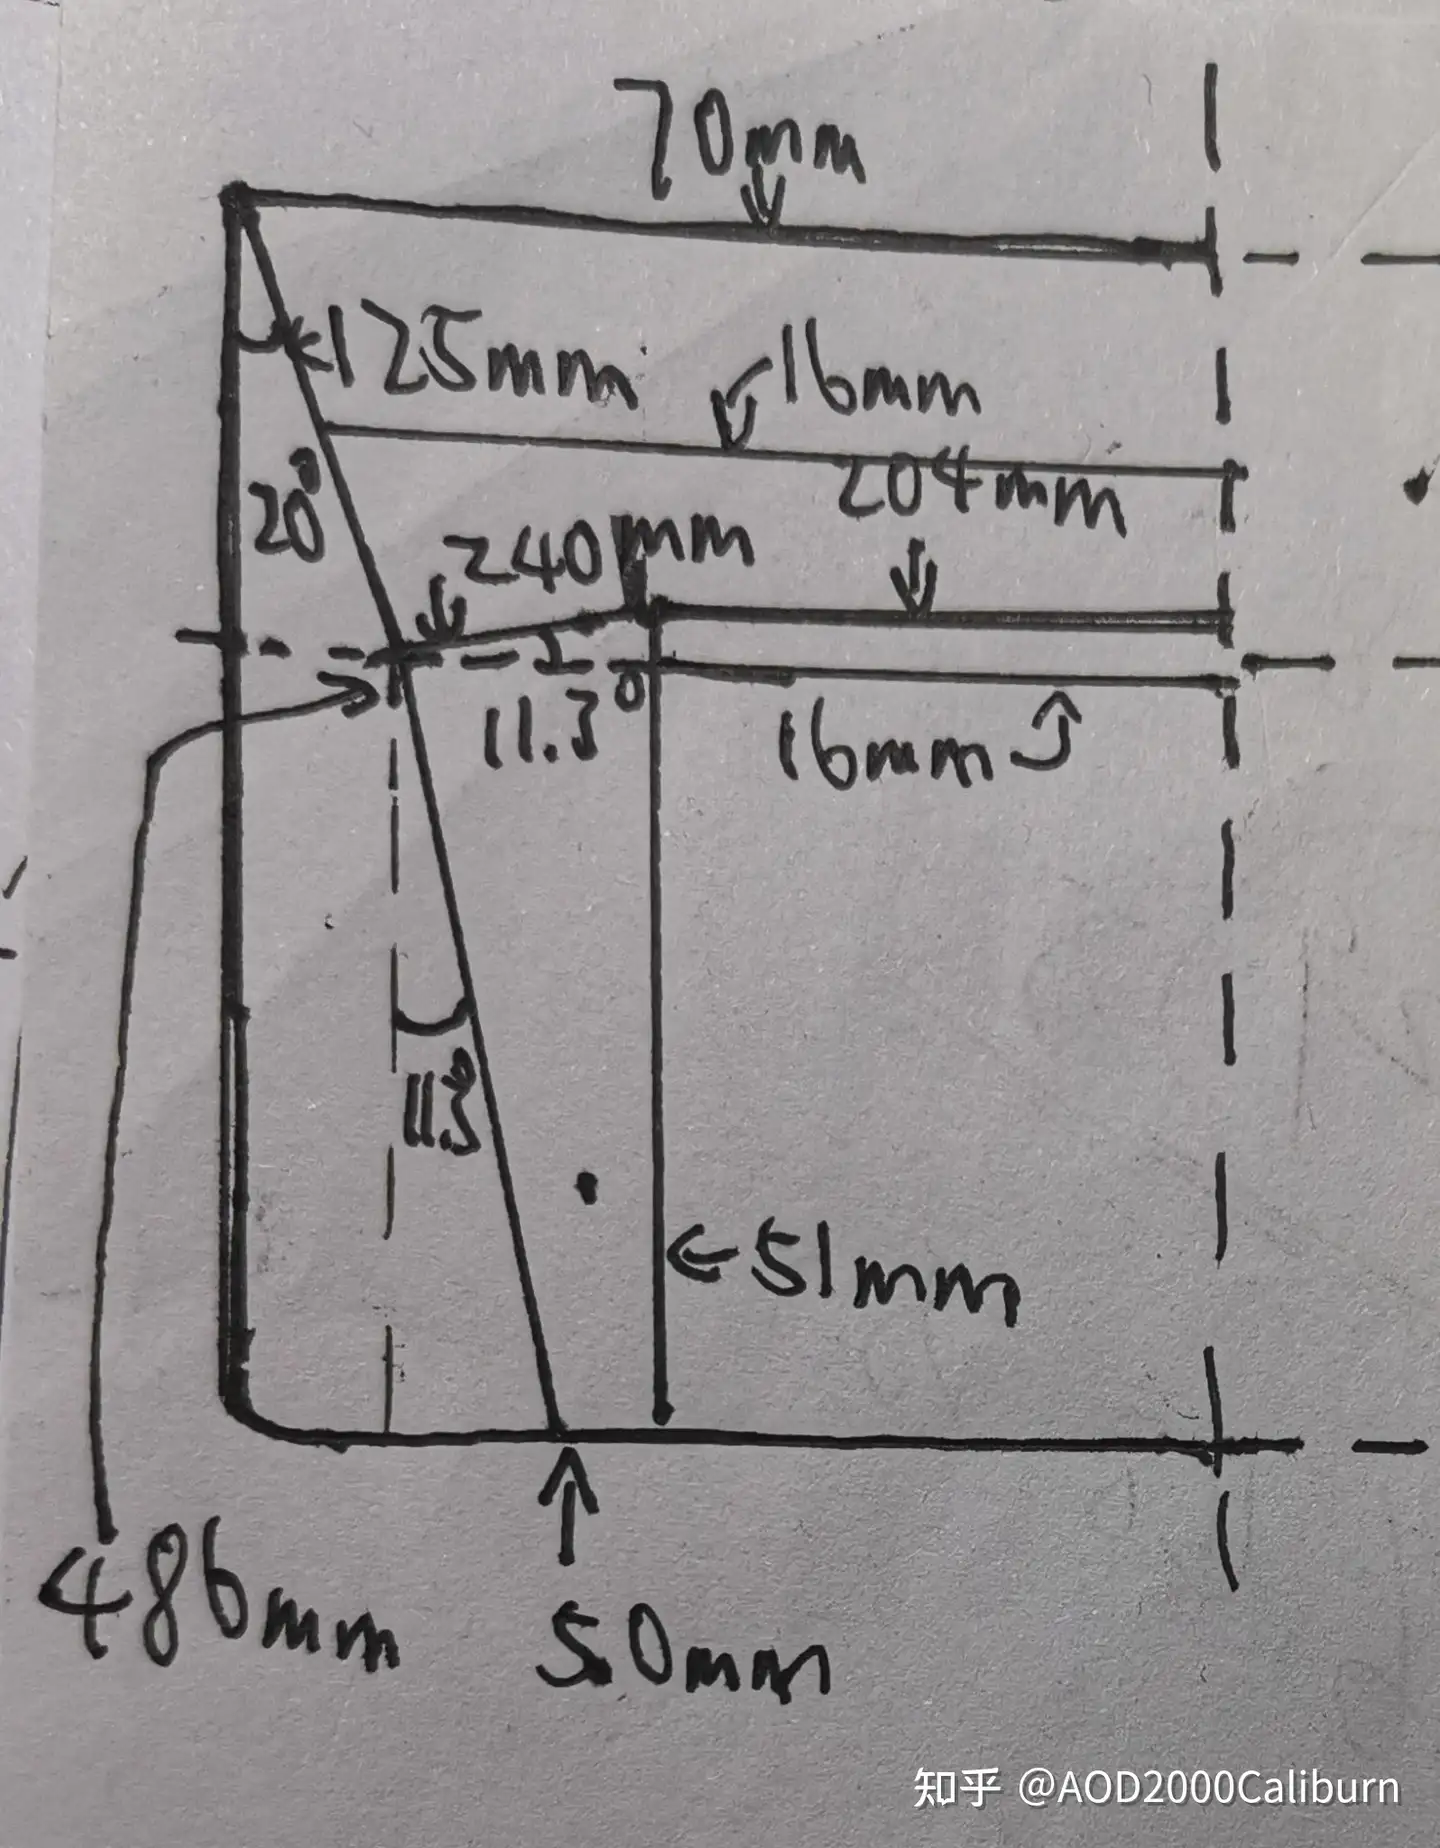 70mm
125mm
16mm
204mm
20°
240mm
11.3°
16mm
11.3°
51mm
486mm
50mm
知乎 @AOD2000Caliburn